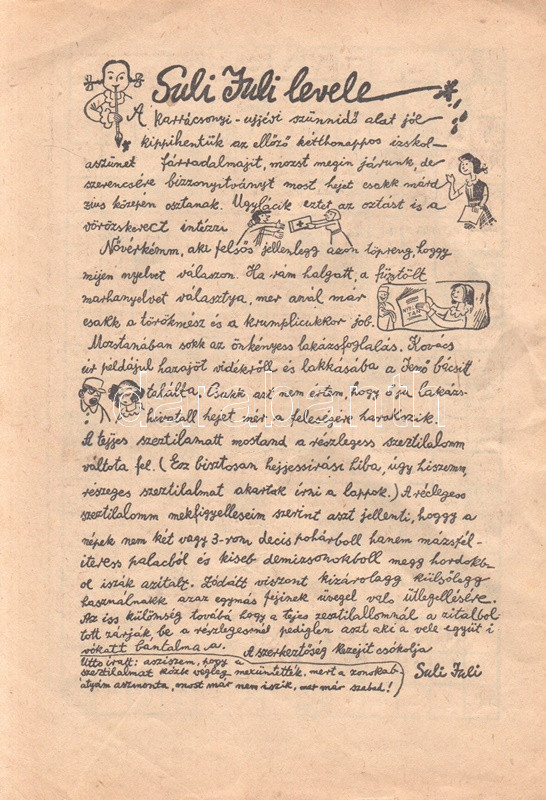 Suli Juli levele
A karrácsonyi-ujjési szünnidő alat jól
kippihentük az ellőző kétthonappos izskol-
aszünet fárradalmajit, mozst megin járunk, de
szerencsére bizzonyitványt most, hejet csakk márd
zius közepén osztanak. Ugylácik eztet az osztást is a
vörözskerect intézzi.
Nővérkémm, aki felsős jellenlegg azon töpreng, hoggy
mijen nyelvet válaszon. Ha rám halgatt, a füstölt
marhanyelvet választya, mer annál már
csakk a törökmész és a krumplicukkor job.
Mozstanában sokk az önkényess lakázsfoglalás. Kovacs
úr példájul hazajöt vidékrőll és lakkásába a Jenő bácsitt
találta. Csakk ast nem értem, hogy ő ja lakázs-
hivatall hejet mér a feleségére haraxszik.
A tejjes szeztilamatt mostand a részlegess szeztilalomm
váltota fel. (Ez bisztosan hejjessirási hiba, úgy hiszemm,
részeges szeztilalmat akartok érni a lappok.) A réclegess
szeztilalomm mekfigyelleseim szerint aszt jellenti, hoggy a
népek nem két vagy 3-rom decis pohárboll hanem mázsfél-
iteress palacból és kiseb demizsonokboll megg hordokb-
ol iszák azitalt. Zódátt viszont kizárolagg külsőlagg
használnakk azaz egymás fejinek üvegel valo ütlegellésére.
Az iss különség továbá hogy a tejes zesztilallomnál a zitalbol
tott zárják be a részlegesnél pediglen aszt aki a vele együt i
vókatt bántalmassa. A szerkeztőség kezejit csókolja
Suli Juli
Utto iratt: asziszem, hogy a
szeztilalmat közbe végleg mexüntették, mert a zonokab
átyám aszmonta, most már nem iszik, mer már szabad!
darabanth